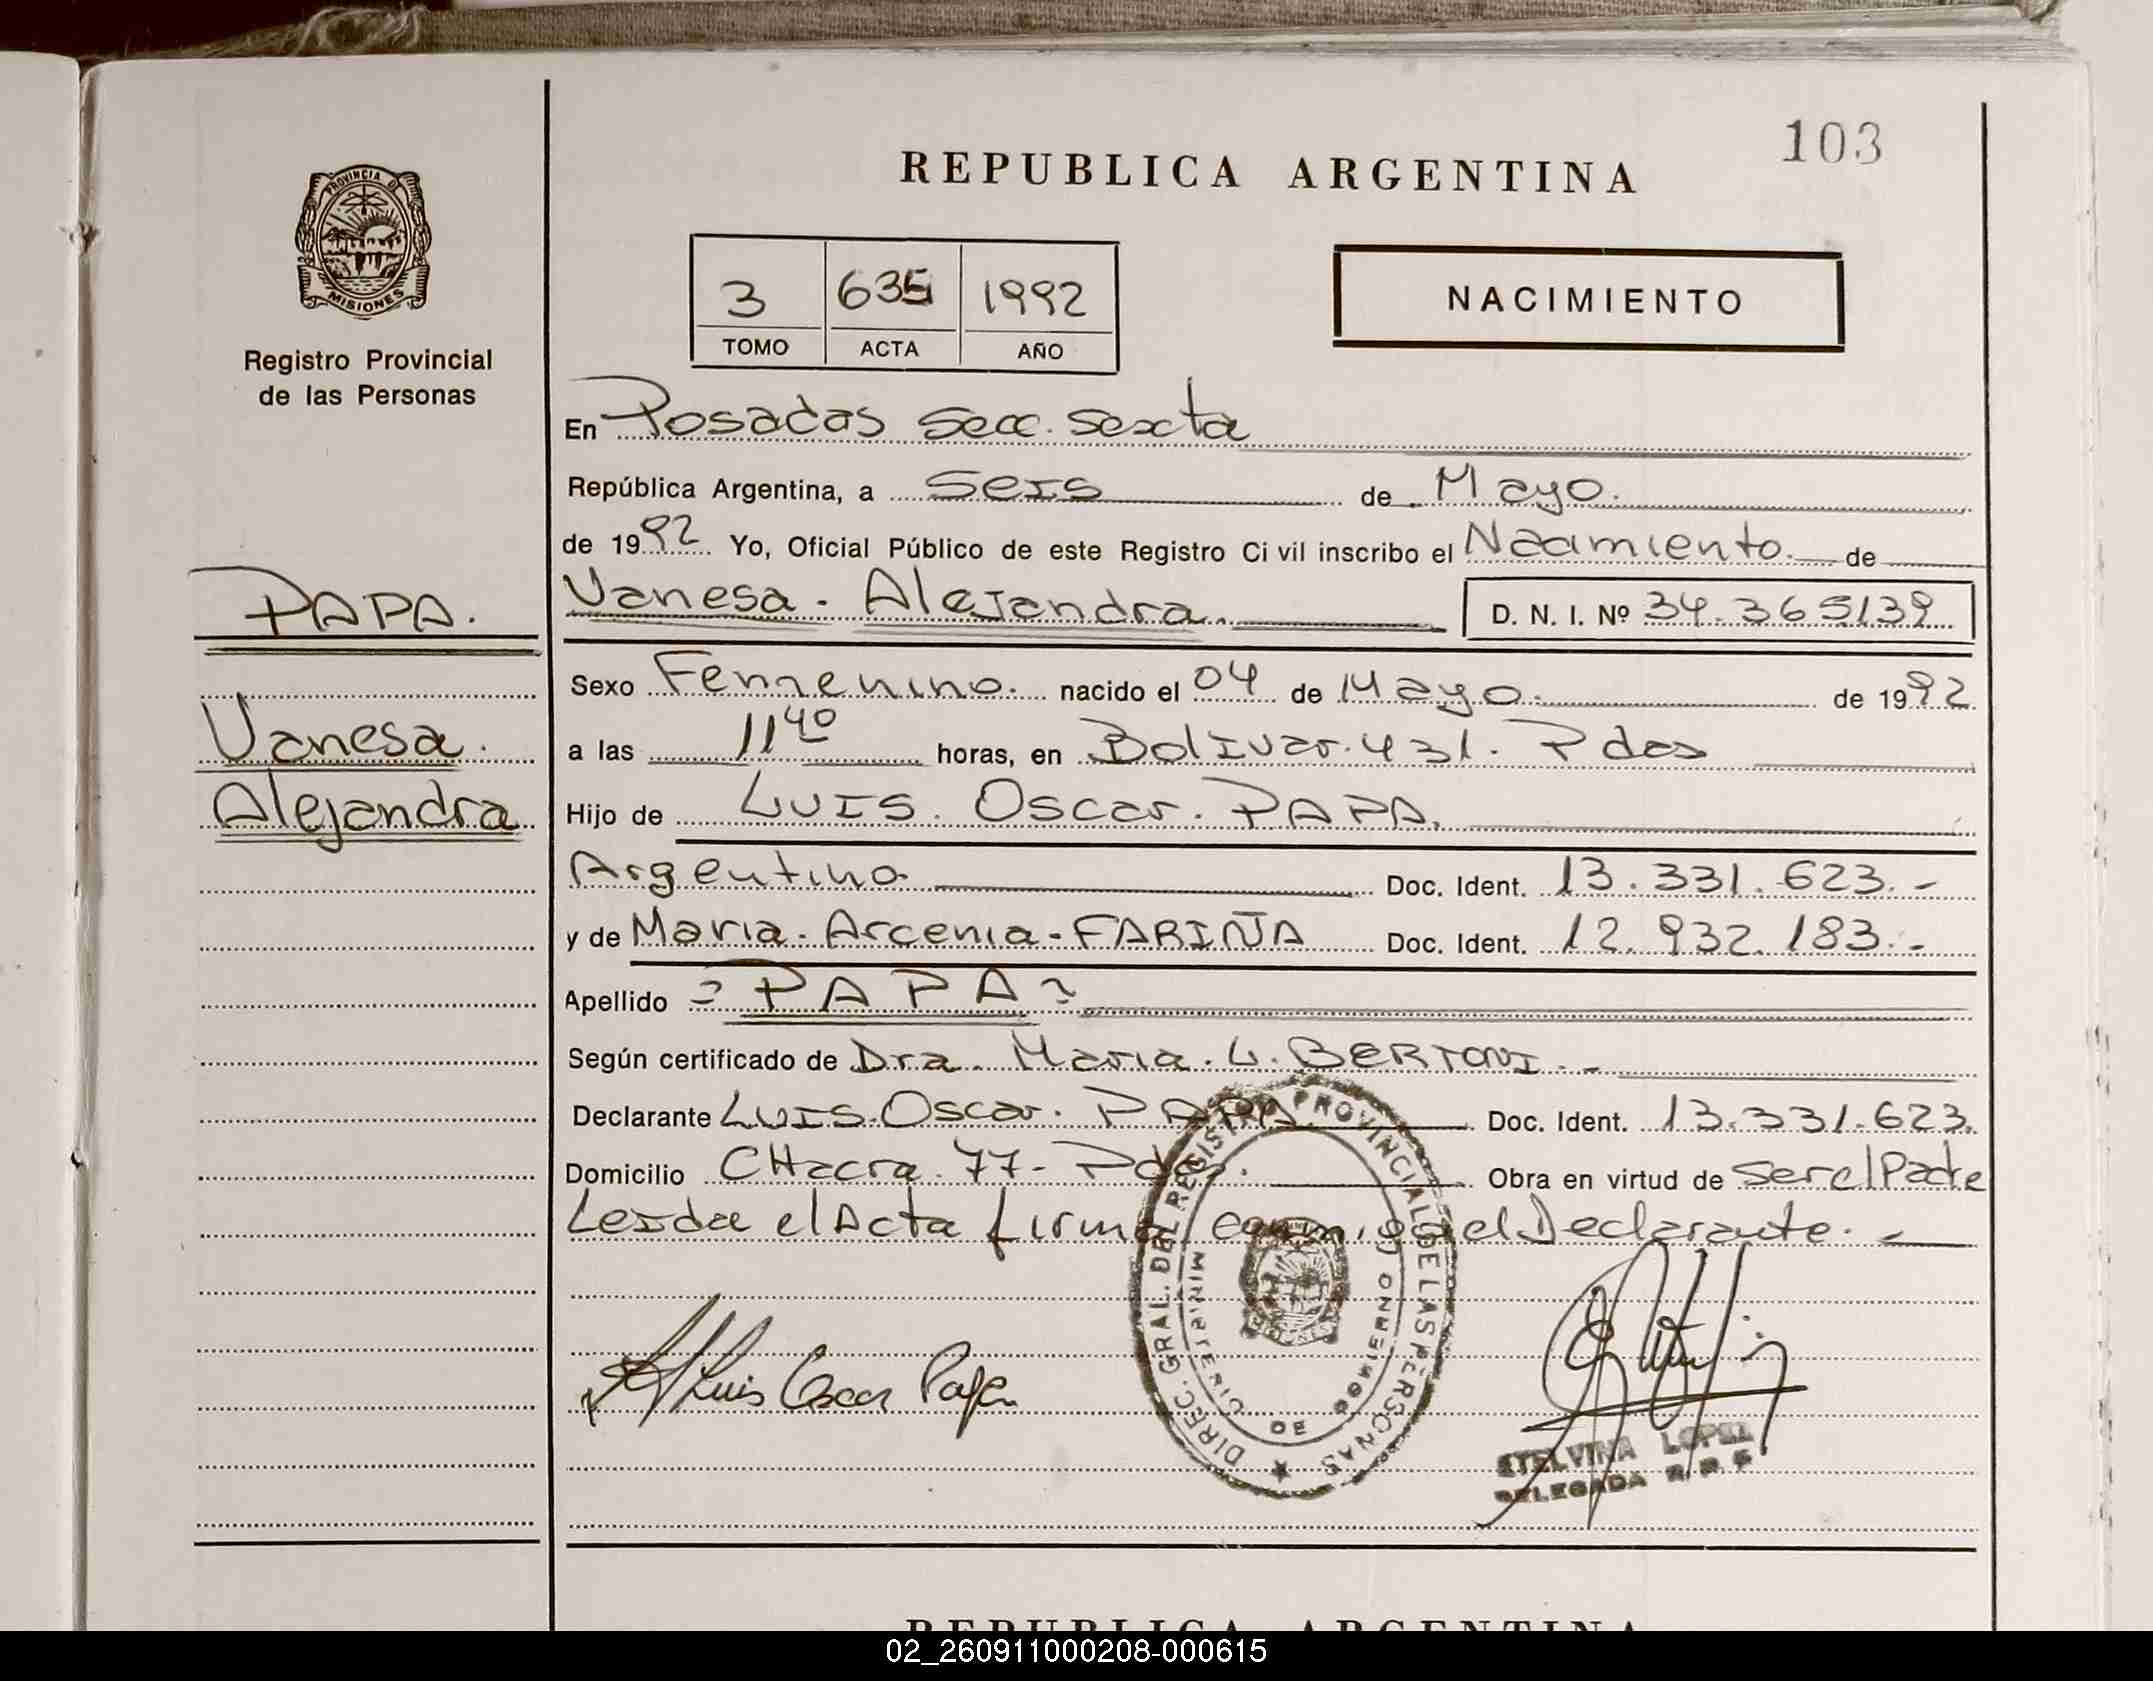 103
REPUBLICA ARGENTINA
PROVINCIA DE
MISIONES
Registro Provincial
de las Personas
3 635 1992
TOMO ACTA AÑO
NACIMIENTO
En Posadas Secc. Sexta
República Argentina, a Seis de Mayo.
de 1992 Yo, Oficial Público de este Registro Ci vil inscribo el Nacimiento. de
PAPA.
Vanesa. Alejandra. D. N. I. Nº 34.365139
Sexo Femenino. nacido el 04 de Mayo. de 1992
Vanesa.
a las 11 40 horas, en Bolivar. 431. Pdas
Alejandra
Hijo de Luis. Oscar. PAPA.
Argentino Doc. Ident. 13.331.623.-
y de Maria. Arcenia. FARIÑA Doc. Ident. 12.932.183.-
Apellido = PAPA =
Según certificado de Dra. Maria. L. BERTONI.-
Declarante Luis. Oscar. PAPA. Doc. Ident. 13.331.623.
Domicilio CHacra. 77- Pdas. Obra en virtud de Ser el Padre
Leida el Acta firma conmigo el Declarante.-
DIREC. GRAL. DEL REGISTRO PROVINCIAL DE LAS PERSONAS
MINISTERIO DE GOBIERNO
Luis Oscar Papa
ETELVINA LOPEZ
DELEGADA R. P. P.
REPUBLICA ARGENTINA
02_260911000208-000615